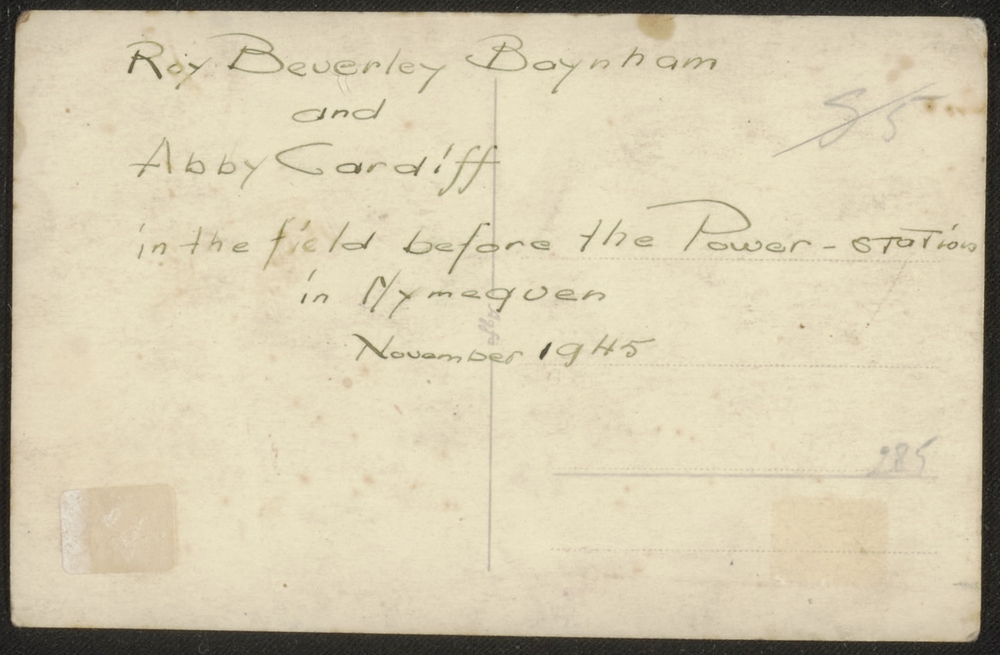 Roy Beverley Boynham
and
Abby Cardiff
in the field before the Power-station
in Nymeguen
November 1945
S/5
285